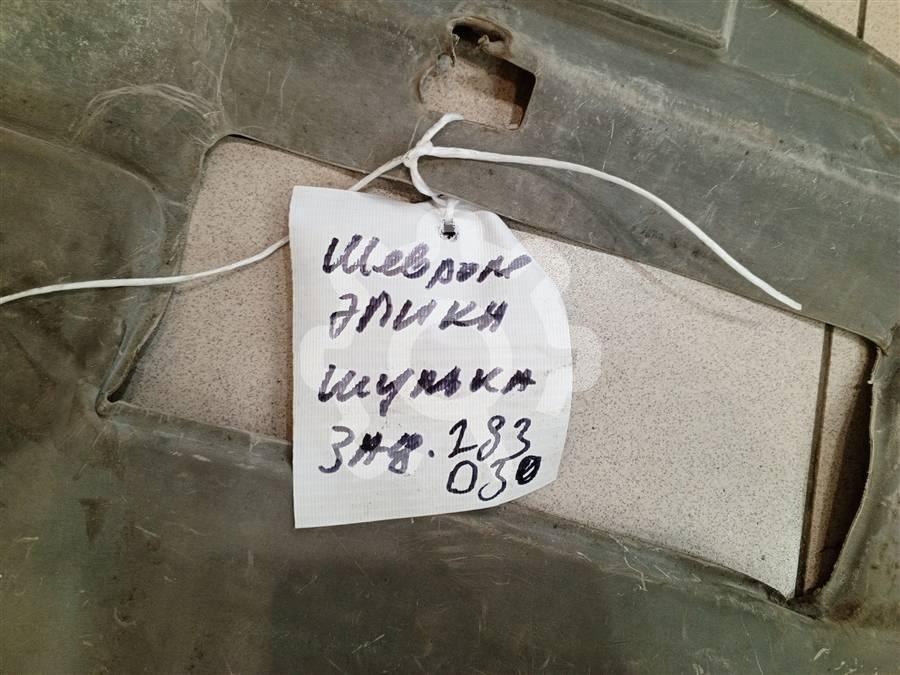 Шевроле
ЭПИКА
шумка
Зад. 283
030